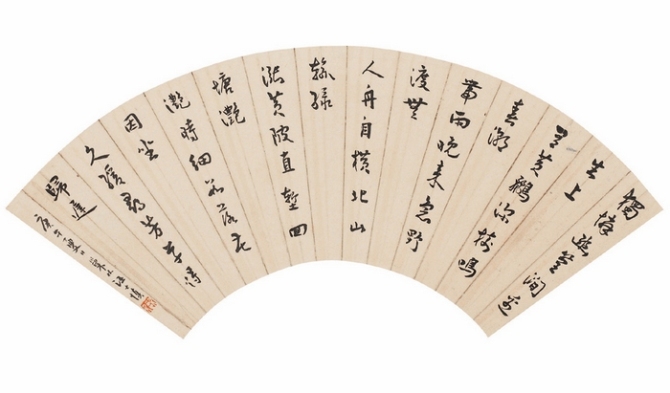 獨憐幽草澗邊
生上
有黃鸝深樹鳴
春潮
帶雨晚來急野
渡無
人舟自橫北山
輸綠
漲黃陂直塹回
塘灩
灩時細數落花
因坐
久緩尋芳草得
歸遲
庚午夏日